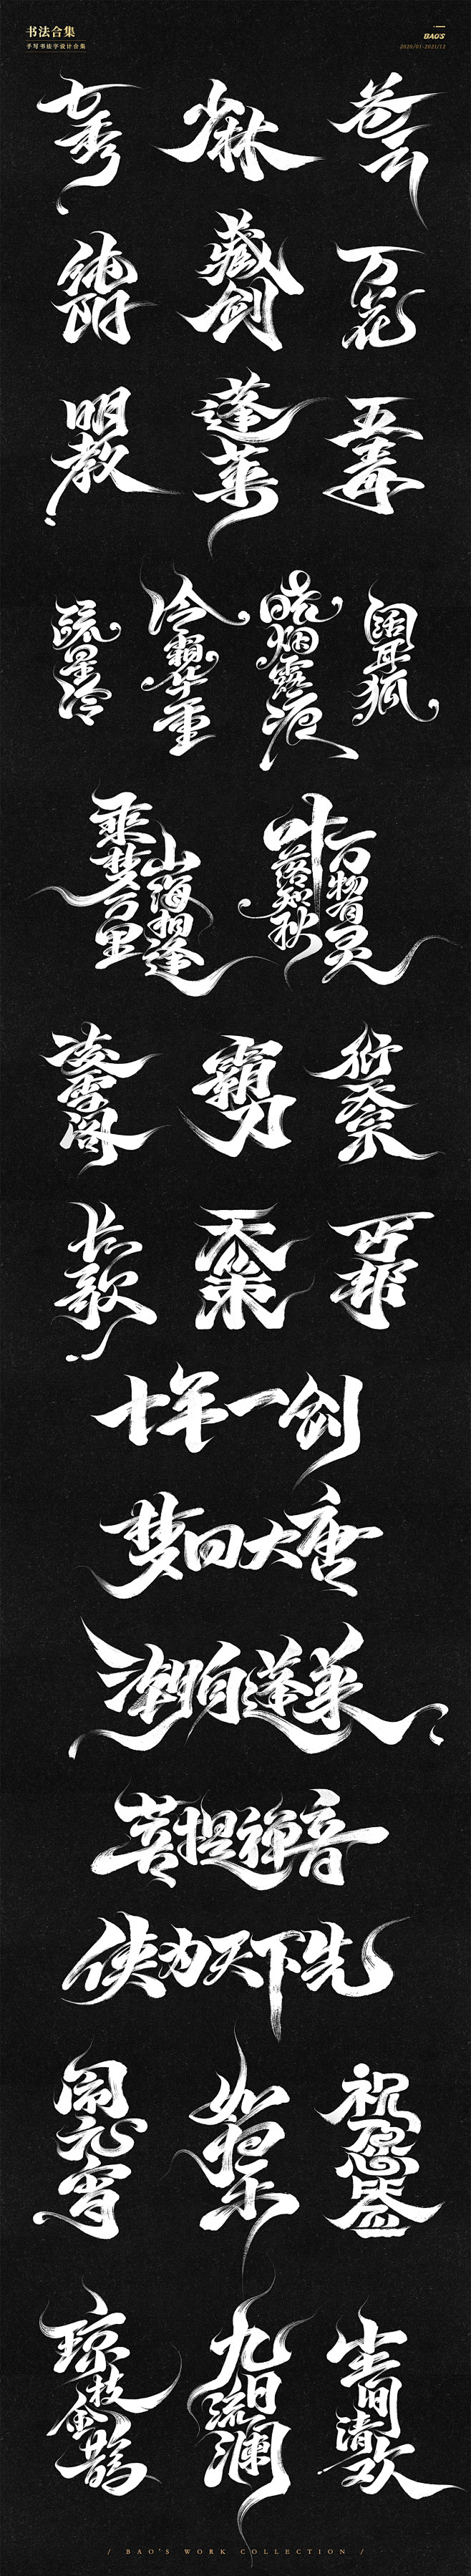 书法合集
手写书法字设计合集
BAO'S
2020/01-2021/12
七秀
少林
苍云
纯阳
藏剑
万花
明教
蓬莱
五毒
疏星冷
冷霜华重
晓烟露浥
阔耳狐
乘梦万里
山海相逢
叶落知秋
万物有灵
凌雪阁
霸刀
衍天宗
长歌
天策
丐帮
十年一剑
梦回大唐
海月明蓬莱
菩提禅音
侠为天下先
闹元宵
祝愿签
琼枝金鹊
九日流澜
尘间清欢
/ BAO'S WORK COLLECTION /